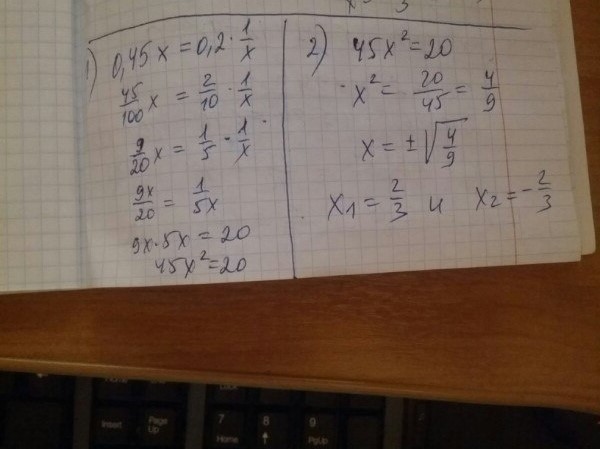 x = 3
1) 0,45x = 0,2 · 1/x
45/100 x = 2/10 · 1/x
9/20 x = 1/5 · 1/x
9x/20 = 1/5x
9x·5x = 20
45x² = 20
2) 45x² = 20
x² = 20/45 = 4/9
x = ±√4/9
x₁ = 2/3 и x₂ = -2/3
Insert
Page Up
7 Home
8 ↑
9 PgUp